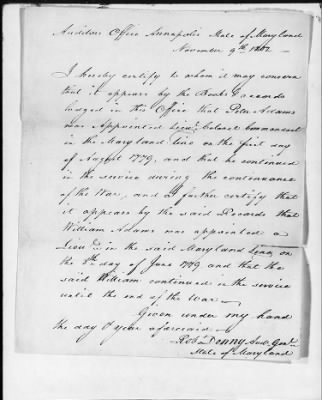 Auditors Office Annapolis State of Maryland
November 9th
I hereby certify to whom it may concern
that it appears by the Books & records
lodged in this Office that Peter Adams
was Appointed Lieut. Colonel Commandant
in the Maryland Line on the first day
of August 1779, and that he continued
in the service during the continuance
of the War, and I further certify that
it appears by the said Records that
William Adams was appointed a
Lieut. in the said Maryland Line, on
the 8th day of June 1779 and that the
said William continued in the service
until the end of the War—
Given under my hand
the day & year aforesaid—
Robt Denny Aud. Genl.
State of Maryland